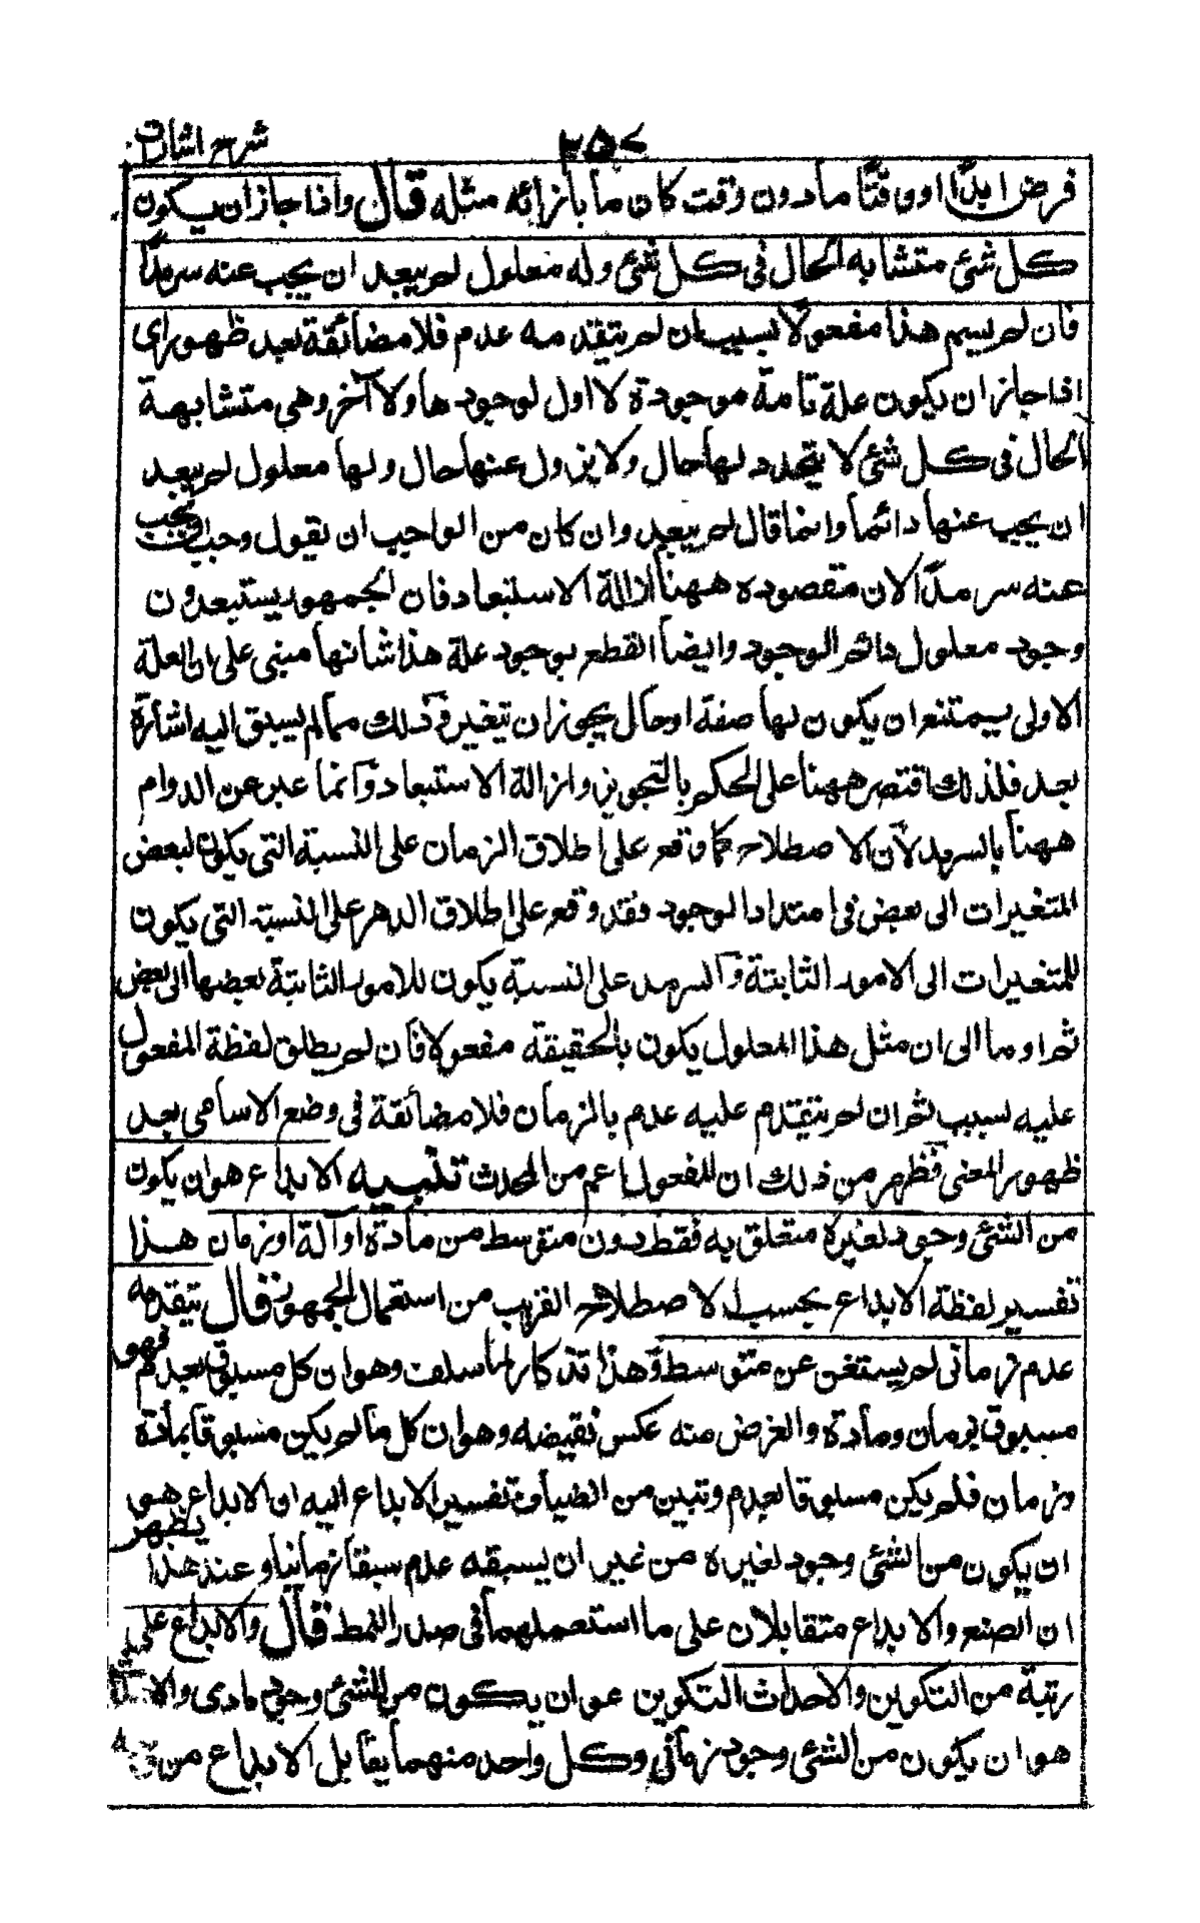 شرح اشارات
٢٥٧
فرض ابدًا او وقتًا ما دون وقت كان ما بازائه مثله قال واذا جاز ان يكون
كل شئ متشابه الحال فى كل شئ وله معلول لم يبعد ان يجب عنه سرمدًا
فان لم يسم هذا مفعولا بسبب ان لم يتقدمه عدم فلا مضائقة بعد ظهور اى
اذا جاز ان يكون علة تامة موجودة لا اول لوجودها ولا آخر وهى متشابهة
الحال فى كل شئ لا يتجدد لها حال ولا يزول عنها حال ولها معلول لم يبعد
ان يجب عنها دائما وانما قال لم يبعد وان كان من الواجب ان نقول وجب ويجب
عنه سرمدًا لان مقصوده ههنا ازالة الاستبعاد فان الجمهور يستبعدون
وجود معلول دائم الوجود وايضا القطع بوجود علة هذا شانها مبنى على ان العلة
الاولى يمتنع ان يكون لها صفة او حال يجوز ان تتغير وذلك مما لم يسبق اليه اشارة
بعد فلذلك اقتصر ههنا على الحكم بالتجويز وازالة الاستبعاد وانما عبر عن الدوام
ههنا بالسرمد لان الاصطلاح كما وقع على اطلاق الزمان على النسبة التى يكون لبعض
المتغيرات الى بعض فى امتداد الوجود فقد وقع على اطلاق الدهر على النسبة التى يكون
للمتغيرات الى الامور الثابتة والسرمد على النسبة يكون للامور الثابتة بعضها الى بعض
ثم اوما الى ان مثل هذا المعلول يكون بالحقيقة مفعولا فان لم يطلق لفظة المفعول
عليه بسبب ثم ان لم يتقدم عليه عدم بالزمان فلا مضائقة فى وضع الاسامى بعد
ظهور المعنى فظهر من ذلك ان المفعول اعم من المحدث تنبيه الابداع هو ان يكون
من الشئ وجود لغيره متعلق به فقط دون متوسط من مادة او آلة او زمان هذا
تفسير لفظة الابداع بحسب الاصطلاح القريب من استعمال الجمهور قال يتقدمه
عدم زمانى لم يستغن عن متوسط وهذا تذكار لما سلف وهو ان كل مسبوق بعدم فهو
مسبوق بزمان ومادة والغرض منه عكس نقيضه وهو ان كل ما لم يكن مسبوقا بمادة
وزمان فلم يكن مسبوقا بعدم وتبين من انضياف تفسير الابداع اليه ان الابداع هو
ان يكون من الشئ وجود لغيره من غير ان يسبقه عدم سبقا زمانيا و عند هذا يظهر
ان الصنع والابداع متقابلان على ما استعملهما فى صدر النمط قال والابداع اعلى
رتبة من التكوين والاحداث التكوين هو ان يكون من الشئ وجود مادى والا
هو ان يكون من الشئ وجود زمانى وكل واحد منهما يقابل الابداع من